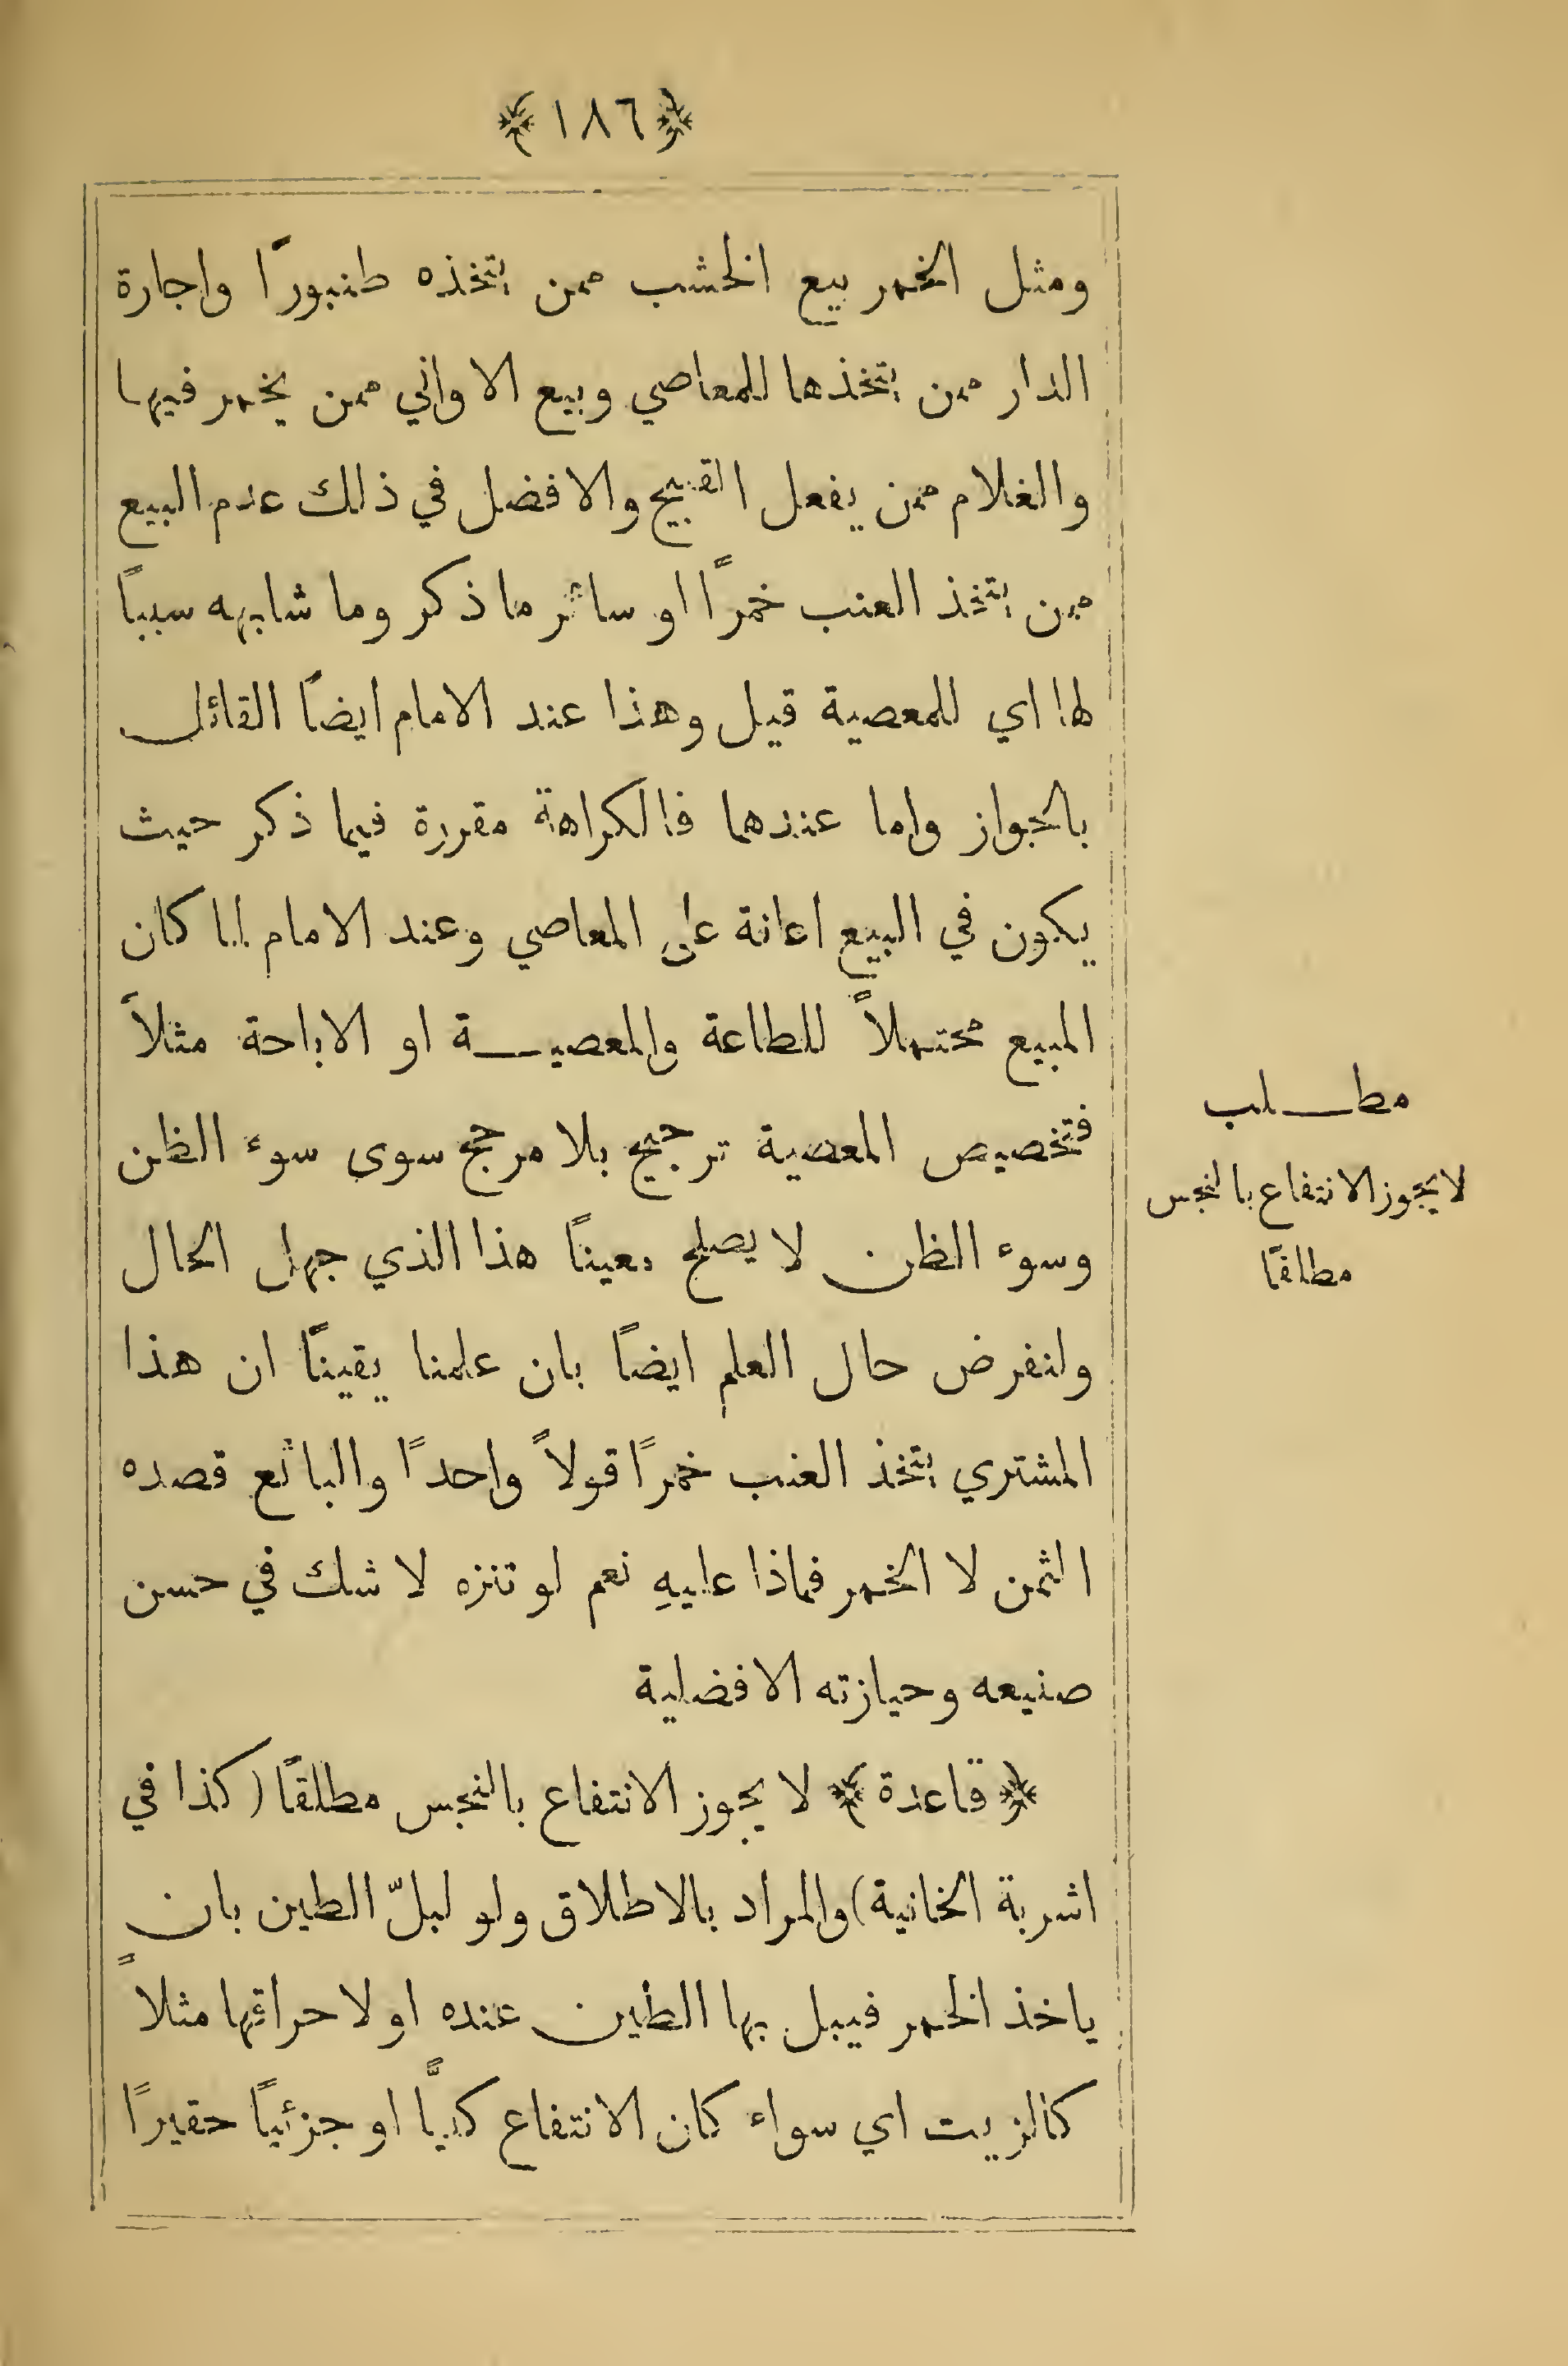 ﴿١٨٦﴾
ومثل الخمر بيع الخشب ممن يتخذه طنبورًا واجارة
الدار ممن يتخذها للمعاصي وبيع الاواني ممن يخمر فيها
والغلام ممن يفعل القبيح والافضل في ذلك عدم البيع
ممن يتخذ العنب خمرًا او سائر ما ذكر وما شابهه سببًا
لها اي للمعصية قيل وهذا عند الامام ايضًا القائل
بالجواز واما عندهما فالكراهة مقررة فيما ذكر حيث
يكون في البيع اعانة على المعاصي وعند الامام لما كان
المبيع محتملاً للطاعة والمعصيـة او الاباحة مثلاً
فتخصيص المعصية ترجيح بلا مرجح سوى سوء الظن
وسوء الظن لا يصلح معينًا هذا الذي جهل الحال
ولنفرض حال العلم ايضًا بان علمنا يقينًا ان هذا
المشتري يتخذ العنب خمرًا قولاً واحدًا والبائع قصده
الثمن لا الخمر فماذا عليهِ نعم لو تنزه لا شك في حسن
صنيعه وحيازته الافضلية
﴿قاعدة﴾ لا يجوز الانتفاع بالنجس مطلقًا (كذا في
اشربة الخانية) والمراد بالاطلاق ولو لبلّ الطين بان
ياخذ الخمر فيبل بها الطين عنده او لاحراقها مثلاً
كالزيت اي سواء كان الانتفاع كليًّا او جزئيًا حقيرًا
مطـلب
لا يجوز الانتفاع بالنجس
مطلقًا